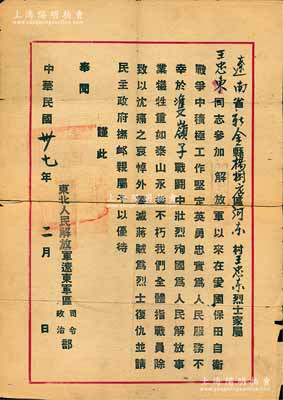 上海阳明拍卖
遼南省新金縣楊樹房區河東村王忠東烈士家屬
王忠東同志參加解放軍以來在愛國保田自衛
戰爭中積極工作堅定英勇忠實為人民服務不
幸於嶺子戰鬪中壯烈殉國為人民解放事
業犧牲重如泰山永垂不朽我們全體指戰員除
致以沈痛之哀悼外誓滅蔣賊為烈士復仇並請
民主政府撫邮親屬予以優待
謹此
奉聞
東北人民解放軍遼東軍區司令部政治部
中華民國卅七年二月日